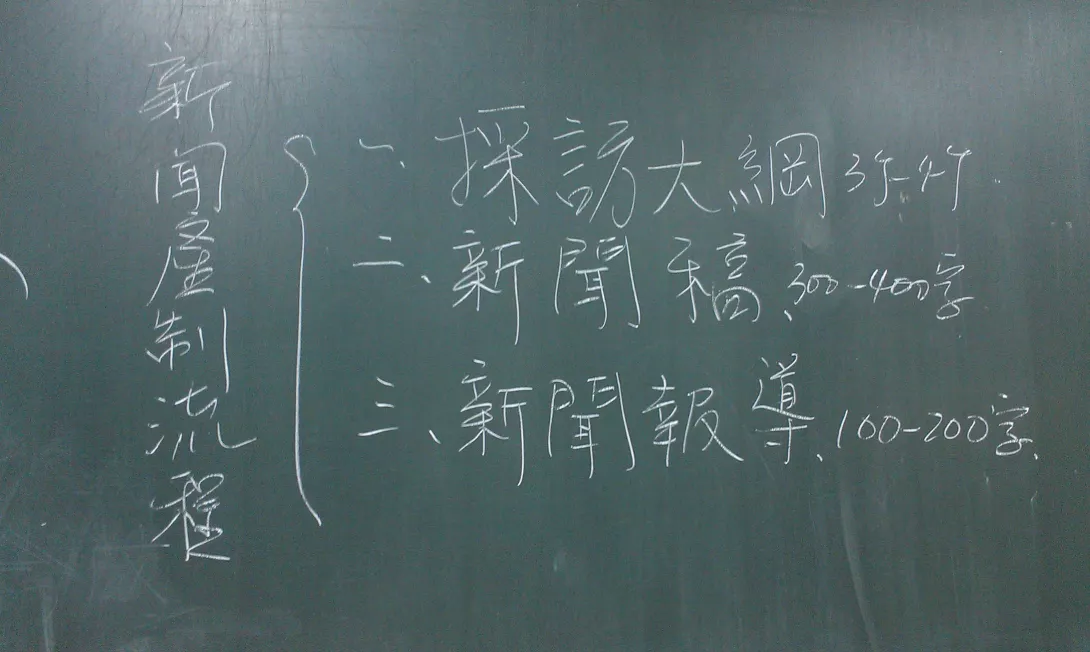 新聞產制流程
一、採訪大綱
二、新聞稿、300-400字
三、新聞報導、100-200字、